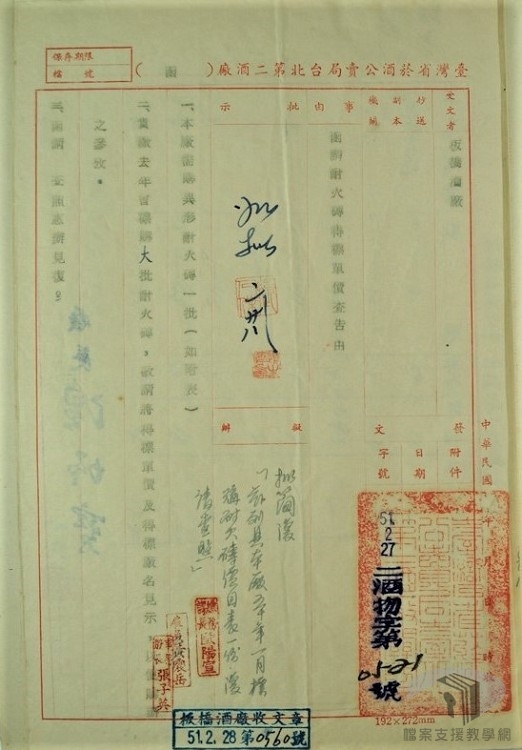 保存期限
檔號
臺灣省菸酒公賣局台北第二酒廠（函）
受文者
板橋酒廠
抄送
副本
機關
事由
函請耐火磚得標單價查告由
批示
擬辦
發文
附件
日期
字號
中華民國
年
月
51.2.27
二酒物字第
05-21
號
一、本廠擬購異形耐火磚一批（如附表）
二、貴廠去年曾標購大批耐火磚，敬請將得標單價及得標廠名見示，以便
之參攷。
三、函請　查照惠辦見復。
如擬
擬簡復
「茲列具本廠五十年一月標
購耐火磚價目表一份 復
請查照」
歐陽宣
張子
板橋酒廠收文章
51.2.28第0560號
192×272mm
檔案支援教學網